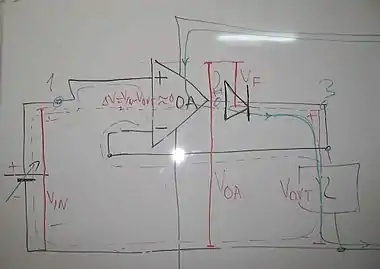 1
+
2
V_F
3
ΔV=V_IN-V_OUT≈0
OA
+
−
+
−
V_IN
V_OA
V_OUT